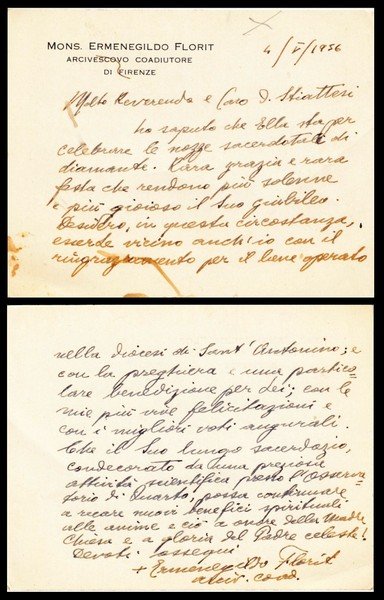 MONS. ERMENEGILDO FLORIT
ARCIVESCOVO COADIUTORE
DI FIRENZE
4/V/1956
Molto Reverendo e Caro D. Stiattesi
ho saputo che Ella sta per
celebrare le nozze sacerdotali di
diamante. Rara grazia e rara
festa che rendono più solenne
e più gioioso il Suo giubileo.
Desidero, in questa circostanza,
esserLe vicino anch'io con il
ringraziamento per il bene operato
nella diocesi di Sant'Antonino; e
con la preghiera e una partico-
lare benedizione per Lei; con le
mie più vive felicitazioni e
con i migliori voti augurali.
Che il Suo lungo sacerdozio,
condecorato da una preziosa
attività scientifica presso l'Osserva-
torio di Quarto, possa continuare
a recare nuovi benefici spirituali
alle anime e ciò a onore della Madre
Chiesa e a gloria del Padre celeste!
Devoti ossequi
+ Ermenegildo Florit
arciv. coad.